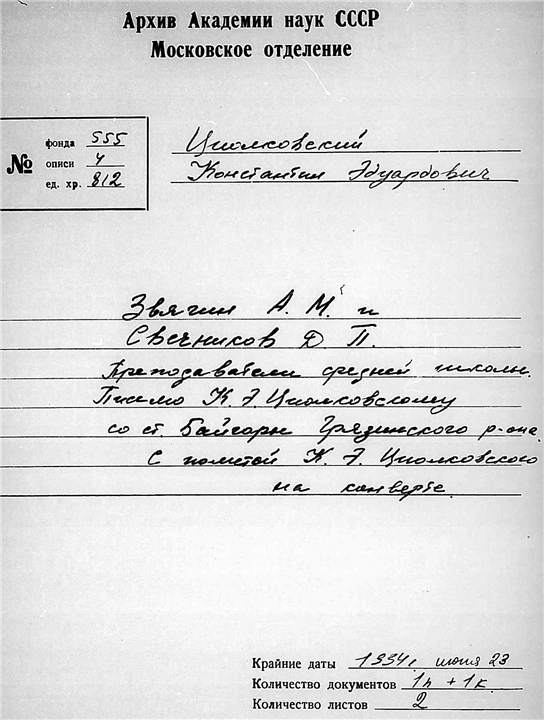 Архив Академии наук СССР
Московское отделение
№
фонда 555
описи 4
ед. хр. 812
Циолковский
Константин Эдуардович
Звягин А. М. и
Свечников Д. П.
Преподаватели средней школы.
Письмо К. Э. Циолковскому
со ст. Байгоры Грязинского р-она.
С пометой К. Э. Циолковского
на конверте.
Крайние даты 1934г. июня 23
Количество документов 1п + 1к.
Количество листов 2